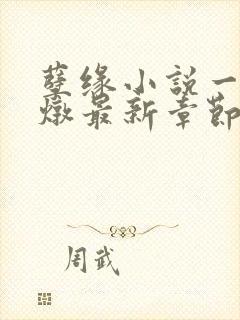 孽缘小説一
燉最新章節
周武